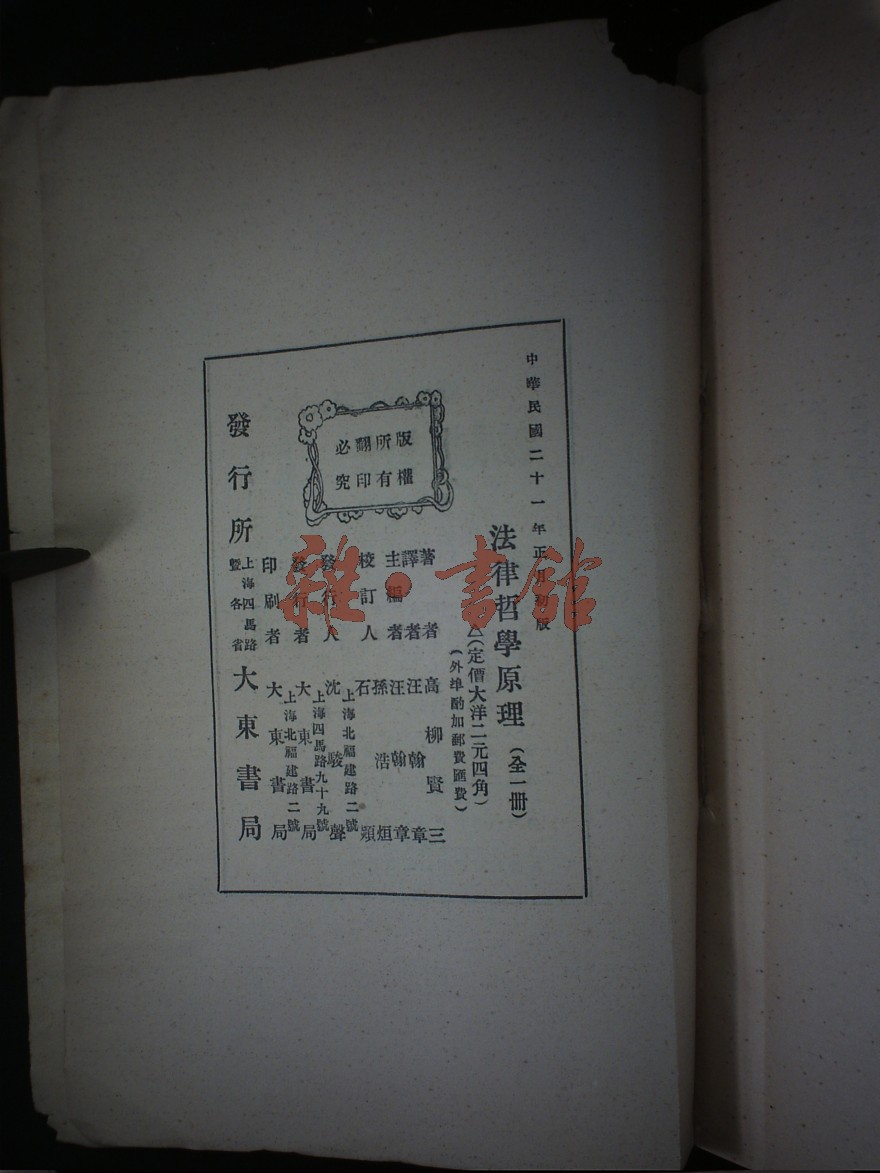 中華民國二十一年正月初版
法律哲學原理（全一冊）
△（定價大洋二元四角）
（外埠酌加郵費匯費）
著者 高柳賢三
譯者 汪翰章
主編者 汪翰章
校訂人 孫浩烜 石頴
發行人 沈駿聲
上海北福建路二號
發行者 大東書局
上海四馬路九十九號
印刷者 大東書局
上海北福建路二號
發行所 上海四馬路暨各省 大東書局
版權所有翻印必究
雜·書館